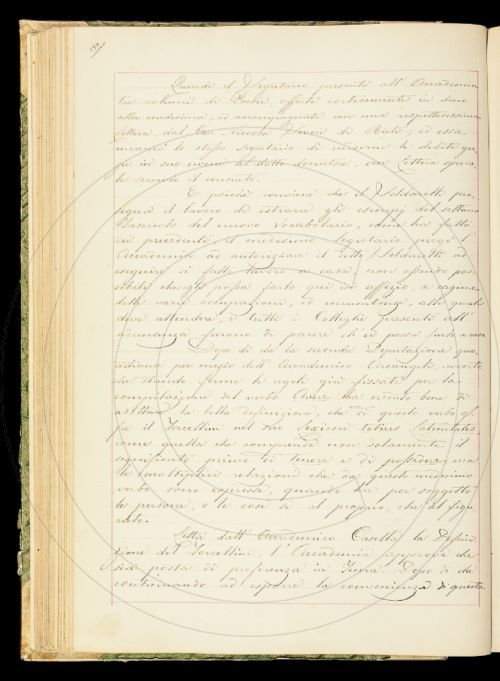 Quindi il Segretario presentò all'Accademia
tre volumi di Poesie, offerte cortesemente in dono
alla medesima, ed accompagnate con una rispettosissima
lettera, dal di Rieti; ed essa
incaricò lo stesso Segretario di le debite gra-
zie in suo nome al dotto donatore, con lettera
secondo il consueto.
E poichè conviene che il Sig. Meldarelli pro-
segua il lavoro di estrarre gli esempj del settimo
del nuovo Vocabolario, come ha fatto
dei precedenti, il medesimo Segretario pregò l'
Accademia ad autorizzare il detto ad
eseguire sì fatto lavoro a casa, non essendo pos-
sibile ch'egli possa farlo qui in ufizio, a cagione
delle varie occupazioni, ed incumbenze, alle quali
deve attendere; e tutti i Colleghi presenti all'
adunanza furono di parere ch'ei possa farlo a casa
Dopo di che la seconda Deputazione quo-
tidiana per mezzo dell'Accademico Arcangeli, avvertì
che stando ferme le regole già fissate per la
compilazione del verbo Avere ha creduto bene di
adottare la bella definizione, che di questo verbo of-
fre il Forcellini nel suo Lexicon totius Latinitatis,
come quella che comprende non solamente il
significato primo di tenere e di possedere ma
le molteplici relazioni che da questo medesimo
verbo sono espresse, quando ha per soggetto
le persone, o le cose sì al proprio, che al figu-
rato.
Letta dall'Accademico Casella la Defini-
zione del Forcellini, l'Accademia approvò che
sia posta di preferenza in Dopo di che
continuando ad esporre la convenienza di questa